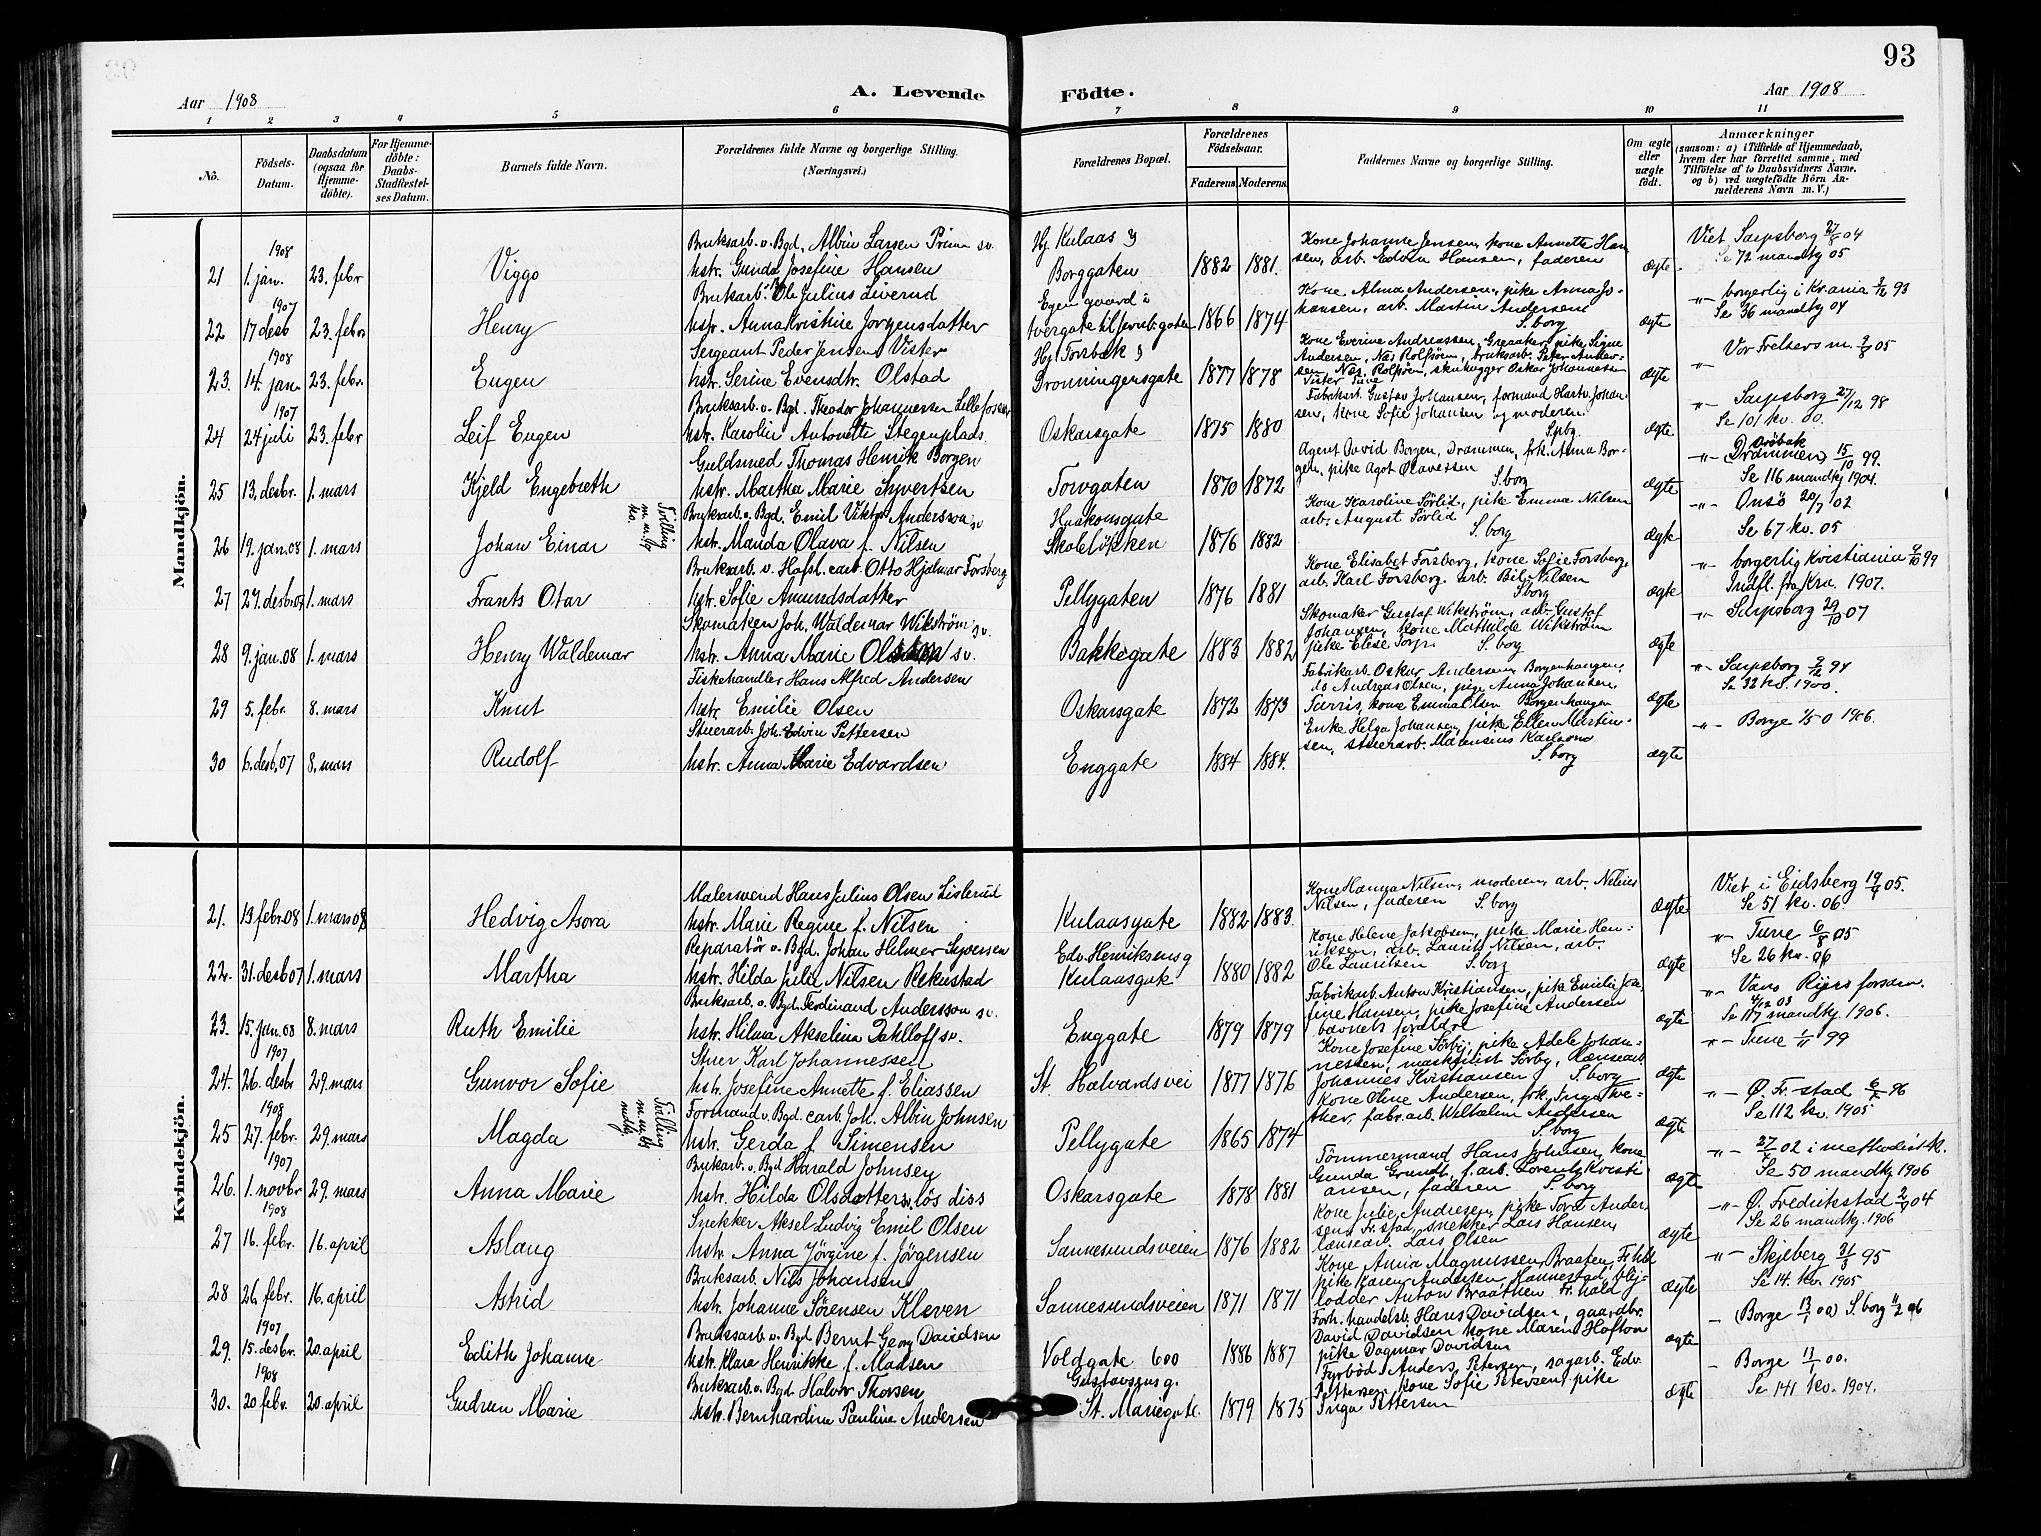 93
Aar 1908
A. Levende Födte.
Aar 1908
1 2 3 4 5 6 7 8 9 10 11
No.
Födsels-Datum.
Daabsdatum (ogsaa för Hjemme-döbte).
For Hjemme-döbte: Daabs-Stadfæstel-ses Datum.
Barnets fulde Navn.
Forældrenes fulde Navne og borgerlige Stilling. (Næringsvei.)
Forældrenes Bopæl.
Forældrenes Födselsaar.
Faderens. Moderens.
Faddernes Navne og borgerlige Stilling.
Om ægte eller uægte födt.
Anmærkninger
(saasom: a) i Tilfælde af Hjemmedaab,
hvem der har forrettet samme, med
Tilföielse af to Daabsvidners Navne,
og b) ved uægtefödte Börn An-
melderens Navn m. V.)
Mandkjön.
1908
Bruksarb. v. Bgd. Albin Larsen Prim sv.
21 1. jan. 23. febr Viggo
hstr. Gunda Josefine Hansen
Hj. Kulaas &
Borggaten 1882 1881.
Kone Johanne Jensen, kone Annette Han-
sen, arb. Edvin Hansen, faderen
ægte
Viet Sarpsborg 27/8 04
Se 72 mandkj 05
1907
Bruksarb. Ole Julius Liverud
22 17 desb 23. febr Henry
hstr. Anna Kristine Jorgensdatter
Egen gaard i
tvergate til Jernb.gaten 1866 1874
Kone Alma Andersen, pike Anna Jo-
hansen, arb. Martin Andersen
S.borg
ægte
"- borgerlig i Kr.ania 2/12 93
Se 36 mandkj 04
1908
Sergeant Peder Jensen Vister
23. 14. jan 23. febr. Eugen
hstr. Serine Evensdtr. Olstad
Hj. Torsbæk &
Dronningensgate 1877 1878
Kone Everine Andreassen, Greaaker, pike Signe
Andersen, Nas Rolfsøen, bruksarb. Peter Ander-
sen, Næs, Rolfsøen, skohugger Oskar Johannesen
Vister Tune
ægte
Vor Frelsers m. 2/8 05
"-
1907
Bruksarb. v. Bgd. Theodor Johannessen Lilleforsen
24 24 juli 23. febr Leif Eugen
hstr. Karolin Antonette Stegenplads.
Oskarsgate 1875 1880
Fabrikarb. Gustav Johansen, formand Hartv. Johan-
sen, kone Sofie Johansen og moderen
Spbg.
ægte
"- Sarpsborg 27/12 98
Se 101 kv. 00.
Guldsmed Thomas Henrik Borgen
25 13. desbr. 1. mars Kjeld Engebreth
hstr. Martha Marie Syvertsen
Torvgaten 1870 1872
Agent David Borgen, Drammen, frk. Alma Bor-
gen, pike Agot Olavessen
S.borg
ægte
Drøbak
"- (Drammen) 15/10 99.
Se 116 mandkj 1904.
Bruksarb. v. Bgd. Emil Viktor Andersson sv
26 19. jan. 08 1. mars Johan Einar
Tvilling
hstr. Manda Olava f. Nilsen
Haakonsgate
Skoleløkken 1876 1882
Kone Karoline Sørlid, pike Emma Nilsen
arb. August Sørlid
S.borg
ægte
"- Onsø 20/7 02
Se 67 kv. 05
Bruksarb. v. Hafsl. carb. Otto Hjalmar Forsberg
27 29. desb. 07 1. mars Frants Otar
hstr. Sofie Amundsdatter
Pellygaten 1876 1881
Kone Elisabet Forsberg, kone Sofie Forsberg,
arb. Karl Forsberg. arb. Bil Nilsen
S.borg
ægte
"- borgerlig Kristiania 9/10 99
Indfl. fra Kra. 1907.
Skomaker Joh. Waldemar Wikström sv.
28 9. jan. 08 1. mars Henry Waldemar
hstr. Anna Marie Olsson sv.
Bakkegate 1883 1882
Skomaker Gustaf Wikström, arb. Gustaf
Johansen, kone Mathilde Wikström
pike Elise Torp S.borg
ægte
"- Sarpsborg 29/10 07
Fiskehandler Hans Alfred Andersen
29 5. febr. 8. mars Knut
hstr. Emilie Olsen
Oskarsgate 1872 1873
Fabrikarb. Oskar Andersen Borgenhaugen,
do Andreas Olsen, pige Anna Johansen,
Furris, kone Emma Olsen Borgenhaugen
ægte
"- Sarpsborg 2/12 94
Se 32 kv. 1900.
Stuerarb. Joh. Edvin Pettersen
30 6. desb. 07 8. mars Rudolf
hstr. Anna Marie Edvardsen
Enggate 1884 1884.
Enke Helga Johansen, pike Ellen Martin-
sen, stuerarb. Marensius Karlsson
S.borg
ægte
"- Borge 1906.
Kvindekjön.
Malersvend Hans Julius Olsen Lislerud
21. 13 febr. 08 1. mars 08 Hedvig Asora
hstr. Marie Regine f. Nilsen
Kulaasgate 1882 1883
Kone Hanna Nilsen, moderen, arb. Nilius
Nilsen, faderen S.borg
ægte
Viet i Eidsberg 19/4 05.
Se 51 kv. 06.
Reparatør v. Bgd. Johan Helmer Syversen
22. 31. desb 07 1. mars Martha
hstr. Hilda Julie Nilsen Rekustad
Edv. Henriksens g
Kulaasgate 1880 1882
Kone Helene Jakobsen, pike Marie Hen-
riksen, arb. Laurits Nilsen, arb.
Ole Lauritsen S.borg
ægte
"- Tune 6/8 05
Se 26 kv. 06
Bruksarb. v. Bgd. Ferdinand Andersson sv.
23. 15. jan. 08 8. mars Ruth Emilie
hstr. Hilma Akselina Dahllöf sv.
Enggate 1879 1879
Fabrikarb. Anton Kristiansen, pike Emilie Jose-
fine Hansen, pike Josefine Andersen
barnets forældre
ægte
"- Vans Rijers forsam.
9/12 03
Se 117 mandkj. 1906.
1907
Stuer Karl Johannessen
24. 26. desbr 29. mars Gunvor Sofie
hstr. Josefine Annette f. Eliassen
St. Halvardsvei 1877 1876
Kone Josefine Sørby, pike Adele Johan-
nessen, maskinist Sørby, lænsearb.
Johannes Kristiansen S.borg
ægte
"- Tune 1/11 99
1908
Formand v. Bgd carb. Joh. Albin Johnsen
25 27. febr. 29. mars Magda
Tvilling
hstr. Gerda f Simensen
Pellygate 1865 1874
Kone Oline Andersen, frk. Inga Twe-
ther, fabr. arb. Wilhelm Andersen
S.borg
ægte
"- Ø. Fr.stad 6/2 96
Se 112 kv. 1905
1907
Bruksarb. v. Bgd Harald Johnsen
26. 1. novbr 29. mars Anna Marie
hstr. Hilda Olsdatter løs diss
Oskarsgate 1878 1881
Tømmermand Hans Johnsen, kone
Gunda Grundt, f.arb. Lorentz Kristi-
ansen, faderen S.borg
ægte
"- 27/7 02 i methodistk.
Se 50 mandkj 1906
1908
Snekker Aksel Ludvig Emil Olsen
27 16. febr. 16. april Aslaug
hstr. Anna Jörgine f. Jörgensen
Sannesundsveien 1876 1882
Kone Julie Andresen, pike Tora Ander-
sen Fr.stad, snekker Lars Hansen,
lænsearb. Lars Olsen
ægte
"- Ø. Fredrikstad 2/9 04
Se 26 mandkj. 1906
Bruksarb. Nils Johansen
28 26. febr. 16. april Astrid
hstr. Johanne Sørensen Kleven
Sannesundsveien 1871 1871
Kone Anna Magnussen Braaten Fr.hld
pike Karen Andersen Hannestad, blij-
lodder Anton Braathen Fr.hald
ægte
"- Skjeberg 31/3 95
Se 14. kv. 1905
1907
Bruksarb. v. Bgd Bernt Georg Davidsen
29. 15. desbr. 20. april Edith Johanne
hstr. Klara Henrikke f. Madsen
Voldgate 600 1886 1887
Forh. handelsb. Hans Davidsen, gaardbr.
David Davidsen kone Maren Hofton
pike Dagmar Davidsen
ægte
- (Borge 13/1 00) S.borg 11/2 06
1908
Bruksarb. v. Bgd. Halvor Thorsen
30. 20 febr. 20. april Gudrun Marie
hstr. Bernhardine Pauline Andersen
Gustavsens g.
St. Mariegate. 1879 1875
Fyrbød. Anders Petersen, sagarb. Edv.
Pettersen, kone Sofie Petersen, pike
Inga Pettersen
ægte
- Borge 11/11 00.
Se 141 kv. 1904.